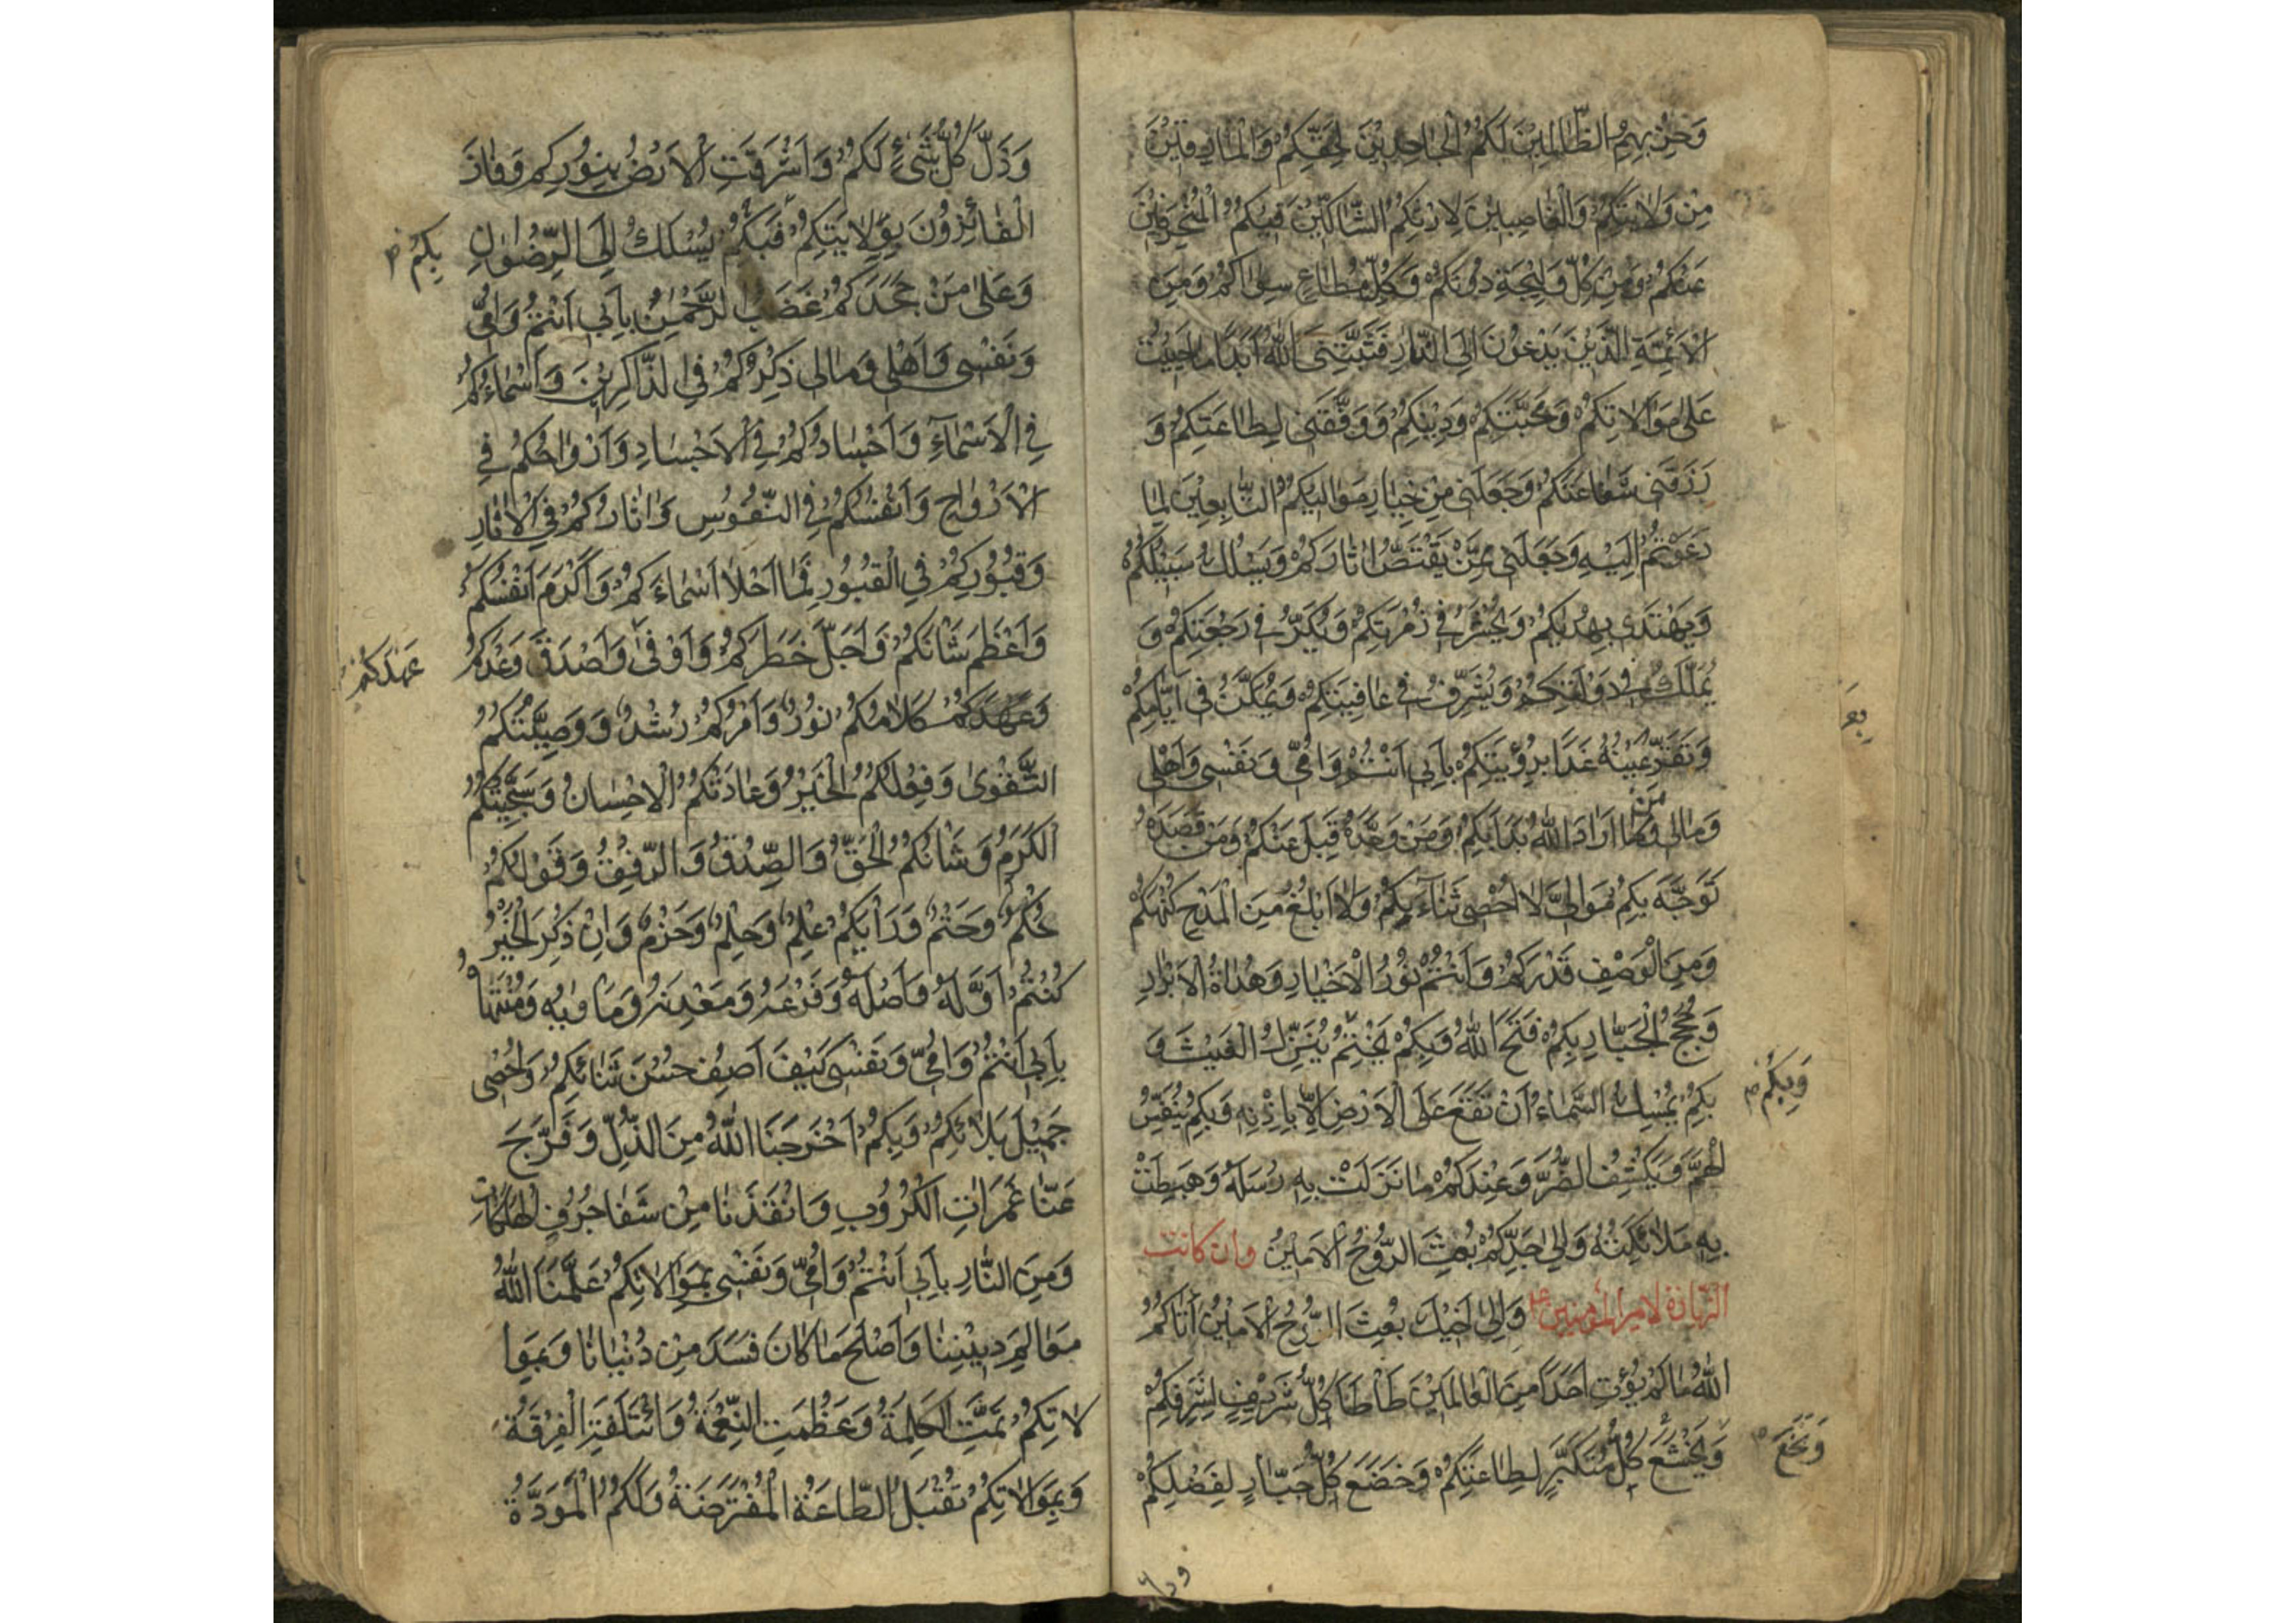 وَحِزْبِهِمُ الظَّالِمِينَ لَكُمُ الْجَاحِدِينَ لِحَقِّكُمْ وَالْمَارِقِينَ
مِنْ وَلَايَتِكُمْ وَالْغَاصِبِينَ لِإِرْثِكُمُ الشَّاكِّينَ فِيكُمُ الْمُنْحَرِفِينَ
عَنْكُمْ وَمِنْ كُلِّ وَلِيجَةٍ دُونَكُمْ وَكُلِّ مُطَاعٍ سِوَاكُمْ وَمِنَ
الْأَئِمَّةِ الَّذِينَ يَدْعُونَ إِلَى النَّارِ فَثَبَّتَنِيَ اللّٰهُ أَبَدًا مَا حَيِيتُ
عَلَى مَوَالَاتِكُمْ وَمَحَبَّتِكُمْ وَدِينِكُمْ وَوَفَّقَنِي لِطَاعَتِكُمْ وَ
رَزَقَنِي شَفَاعَتَكُمْ وَجَعَلَنِي مِنْ خِيَارِ مَوَالِيكُمُ التَّابِعِينَ لِمَا
دَعَوْتُمْ إِلَيْهِ وَجَعَلَنِي مِمَّنْ يَقْتَصُّ اٰثَارَكُمْ وَيَسْلُكُ سَبِيلَكُمْ
وَيَهْتَدِي بِهُدَاكُمْ وَيُحْشَرُ فِي زُمْرَتِكُمْ وَيَكِرُّ فِي رَجْعَتِكُمْ وَ
يُمَلَّكُ فِي دَوْلَتِكُمْ وَيُشَرَّفُ فِي عَافِيَتِكُمْ وَيُمَكَّنُ فِي أَيَّامِكُمْ
وَتَقَرُّ عَيْنُهُ غَدًا بِرُؤْيَتِكُمْ بِأَبِي أَنْتُمْ وَأُمِّي وَنَفْسِي وَأَهْلِي
وَمَالِي مَنْ أَرَادَ اللّٰهَ بَدَأَ بِكُمْ وَمَنْ وَحَّدَهُ قَبِلَ عَنْكُمْ وَمَنْ قَصَدَهُ
تَوَجَّهَ بِكُمْ مَوَالِيَّ لَا أُحْصِي ثَنَاءَكُمْ وَلَا أَبْلُغُ مِنَ الْمَدْحِ كُنْهَكُمْ
وَمِنَ الْوَصْفِ قَدْرَكُمْ وَأَنْتُمْ نُورُ الْأَخْيَارِ وَهُدَاةُ الْأَبْرَارِ
وَحُجَجُ الْجَبَّارِ بِكُمْ فَتَحَ اللّٰهُ وَبِكُمْ يَخْتِمُ يُنَزِّلُ الْغَيْثَ وَ
وَبِكُمْ
بِكُمْ يُمْسِكُ السَّمَاءَ أَنْ تَقَعَ عَلَى الْأَرْضِ إِلَّا بِإِذْنِهِ وَبِكُمْ يُنَفِّسُ
الْهَمَّ وَيَكْشِفُ الضُّرَّ وَعِنْدَكُمْ مَا نَزَلَتْ بِهِ رُسُلُهُ وَهَبَطَتْ
بِهِ مَلَائِكَتُهُ وَإِلَى جَدِّكُمْ بُعِثَ الرُّوحُ الْأَمِينُ وان كانت
الزيارة لامير المؤمنين وَإِلَى أَخِيكَ بُعِثَ الرُّوحُ الْأَمِينُ أَتَاكُمُ
اللّٰهُ مَا لَمْ يُؤْتِ أَحَدًا مِنَ الْعَالَمِينَ طَأْطَأَ كُلُّ شَرِيفٍ لِشَرَفِكُمْ
وَيَخْشَعُ كُلُّ مُتَكَبِّرٍ لِطَاعَتِكُمْ وَخَضَعَ كُلُّ جَبَّارٍ لِفَضْلِكُمْ
وَبَخَعَ
وذل
وَذَلَّ كُلُّ شَيْءٍ لَكُمْ وَأَشْرَقَتِ الْأَرْضُ بِنُورِكُمْ وَفَازَ
الْفَائِزُونَ بِوَلَايَتِكُمْ فَبِكُمْ يُسْلَكُ إِلَى الرِّضْوَانِ
بِكُمْ
وَعَلَى مَنْ جَحَدَكُمْ غَضَبُ الرَّحْمٰنِ بِأَبِي أَنْتُمْ وَأُمِّي
وَنَفْسِي وَأَهْلِي وَمَالِي ذِكْرُكُمْ فِي الذَّاكِرِينَ وَأَسْمَاءُكُمْ
فِي الْأَسْمَاءِ وَأَجْسَادُكُمْ فِي الْأَجْسَادِ وَأَرْوَاحُكُمْ فِي
الْأَرْوَاحِ وَأَنْفُسُكُمْ فِي النُّفُوسِ وَاٰثَارُكُمْ فِي الْاٰثَارِ
وَقُبُورُكُمْ فِي الْقُبُورِ فَمَا أَحْلَا أَسْمَاءَكُمْ وَأَكْرَمَ أَنْفُسَكُمْ
وَأَعْظَمَ شَأْنَكُمْ وَأَجَلَّ خَطَرَكُمْ وَأَوْفَى وَأَصْدَقَ وَعْدَكُمْ
عَهْدَكُمْ
وَعَهْدَكُمْ كَلَامُكُمْ نُورٌ وَأَمْرُكُمْ رُشْدٌ وَوَصِيَّتُكُمُ
التَّقْوَى وَفِعْلُكُمُ الْخَيْرُ وَعَادَتُكُمُ الْإِحْسَانُ وَسَجِيَّتُكُمُ
الْكَرَمُ وَشَأْنُكُمُ الْحَقُّ وَالصِّدْقُ وَالرِّفْقُ وَقَوْلُكُمْ
حُكْمٌ وَحَتْمٌ وَرَأْيُكُمْ عِلْمٌ وَحِلْمٌ وَحَزْمٌ وَإِنْ ذُكِرَ الْخَيْرُ
كُنْتُمْ أَوَّلَهُ وَأَصْلَهُ وَفَرْعَهُ وَمَعْدِنَهُ وَمَأْوٰيهُ وَمُنْتَهَاهُ
بِأَبِي أَنْتُمْ وَأُمِّي وَنَفْسِي كَيْفَ أَصِفُ حُسْنَ ثَنَائِكُمْ وَأُحْصِي
جَمِيلَ بَلَائِكُمْ وَبِكُمْ أَخْرَجَنَا اللّٰهُ مِنَ الذُّلِّ وَفَرَّجَ
عَنَّا غَمَرَاتِ الْكُرُوبِ وَأَنْقَذَنَا مِنْ شَفَا جُرُفِ الْهَلَكَاتِ
وَمِنَ النَّارِ بِأَبِي أَنْتُمْ وَأُمِّي وَنَفْسِي بِمَوَالَاتِكُمْ عَلَّمَنَا اللّٰهُ
مَعَالِمَ دِينِنَا وَأَصْلَحَ مَا كَانَ فَسَدَ مِنْ دُنْيَانَا وَبِمَوَا
لَاتِكُمْ تَمَّتِ الْكَلِمَةُ وَعَظُمَتِ النِّعْمَةُ وَائْتَلَفَتِ الْفُرْقَةُ
وَبِمَوَالَاتِكُمْ تُقْبَلُ الطَّاعَةُ الْمُفْتَرَضَةُ وَلَكُمُ الْمَوَدَّةُ